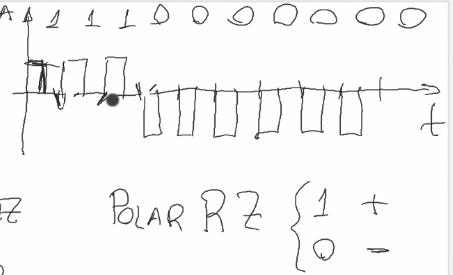 A 1 1 1 0 0 0 0 0 0 0
t
Z POLAR RZ { 1 +
0 -